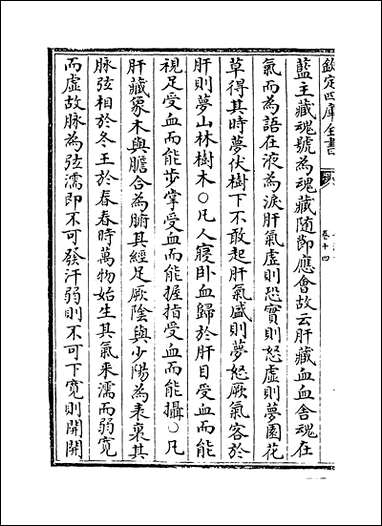 欽定四庫全書
卷十四
藍主藏魂號為魂藏隨節應會故云肝藏血血舍魂在
氣而為語在液為淚肝氣虛則恐實則怒虛則夢園花
草得其時夢伏樹下不敢起肝氣盛則夢怒厥氣客於
肝則夢山林樹木○凡人寢卧血歸於肝目受血而能
視足受血而能步掌受血而能握指受血而能攝○凡
肝藏象木與膽合為腑其經足厥陰與少陽為表裏其
脉弦相於冬王於春春時萬物始生其氣来濡而弱寛
而虛故脉為弦濡即不可發汗弱則不可下寛則開開